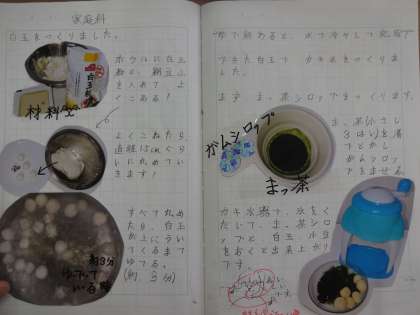 家庭科
白玉をつくりました。
ボウルに白玉
粉と、絹豆ふ
を入れて、よ
くこねる！
材料
よくこねたら
直径
に丸めてい
きます！
すべて丸め
たら、白玉
が上にうい
てくるまで
ゆでる。
(約 3分)
約3分
ゆでて
いる時
ゆで終わると、水で冷やして完成？
できた白玉で、カキ氷をつくりました。
まず、まっ茶シロップをつくります。
まっ茶
を湯
でとかし
ガムシロッ
プをまぜる。
ガムシロップ
まっ茶
カキ氷器で、氷をく
だいて、まっ茶シロ
ップと白玉、小豆
をおくと出来上がり
です。